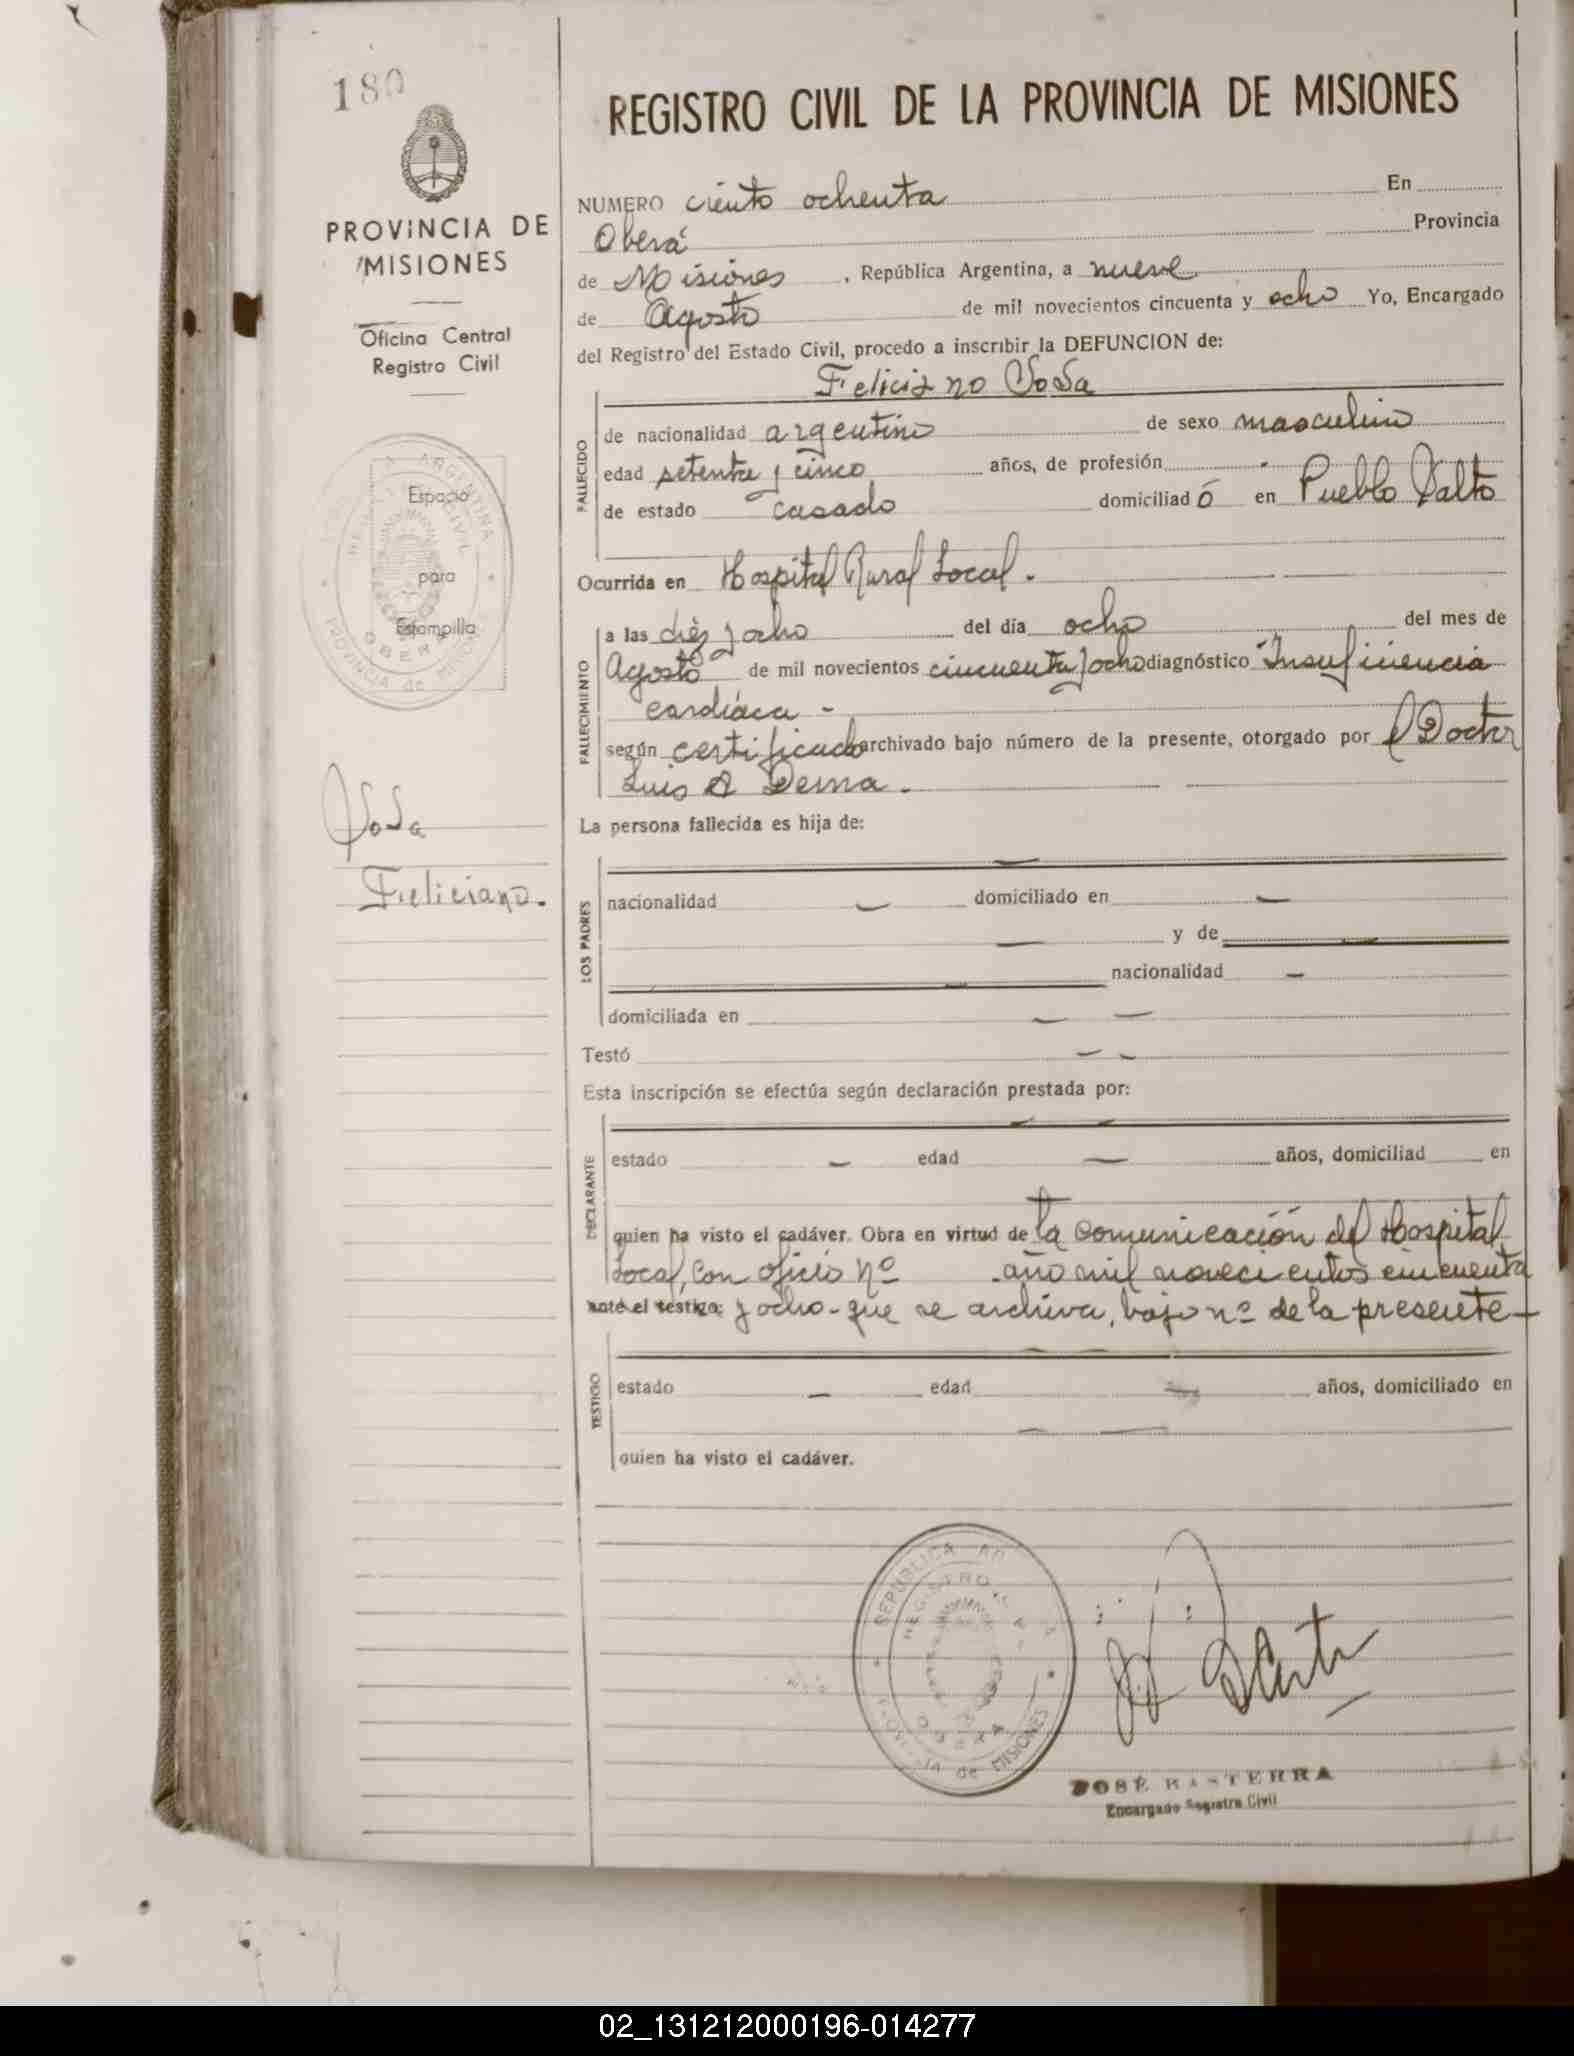 180
PROVINCIA DE
MISIONES
Oficina Central
Registro Civil
Espacio
para
Estampilla
Feliciano.
REGISTRO CIVIL DE LA PROVINCIA DE MISIONES
NUMERO ciento ochenta En
Oberá Provincia
de Misiones , República Argentina, a nueve
de Agosto de mil novecientos cincuenta y ocho Yo, Encargado
del Registro del Estado Civil, procedo a inscribir la DEFUNCION de:
Feliciano
FALLECIDO
de nacionalidad argentino de sexo masculino
edad setenta y cinco años, de profesión -
de estado casado domiciliad ó en Pueblo Salto
Ocurrida en Hospital Rural Local.
FALLECIMIENTO
a las diez y ocho del día ocho del mes de
Agosto de mil novecientos cincuenta y ocho diagnóstico Insuficiencia
cardíaca -
según certificado archivado bajo número de la presente, otorgado por el Doctor
Luis A
La persona fallecida es hija de:
LOS PADRES
nacionalidad — domiciliado en —
— y de
nacionalidad —
domiciliada en — —
Testó — -
Esta inscripción se efectúa según declaración prestada por:
DECLARANTE
estado — edad — años, domiciliad en
quien ha visto el cadáver. Obra en virtud de la comunicación del Hospital
Local, con oficio nº año mil novecientos cincuenta
ante el testigo: y ocho - que se archiva, bajo nº de la presente -
TESTIGO
estado — edad — años, domiciliado en
— —
quien ha visto el cadáver.
REPUBLICA
REGISTRO
OBERA
de MISIONES
JOSÉ BASTERRA
Encargado Registro Civil
02_131212000196-014277